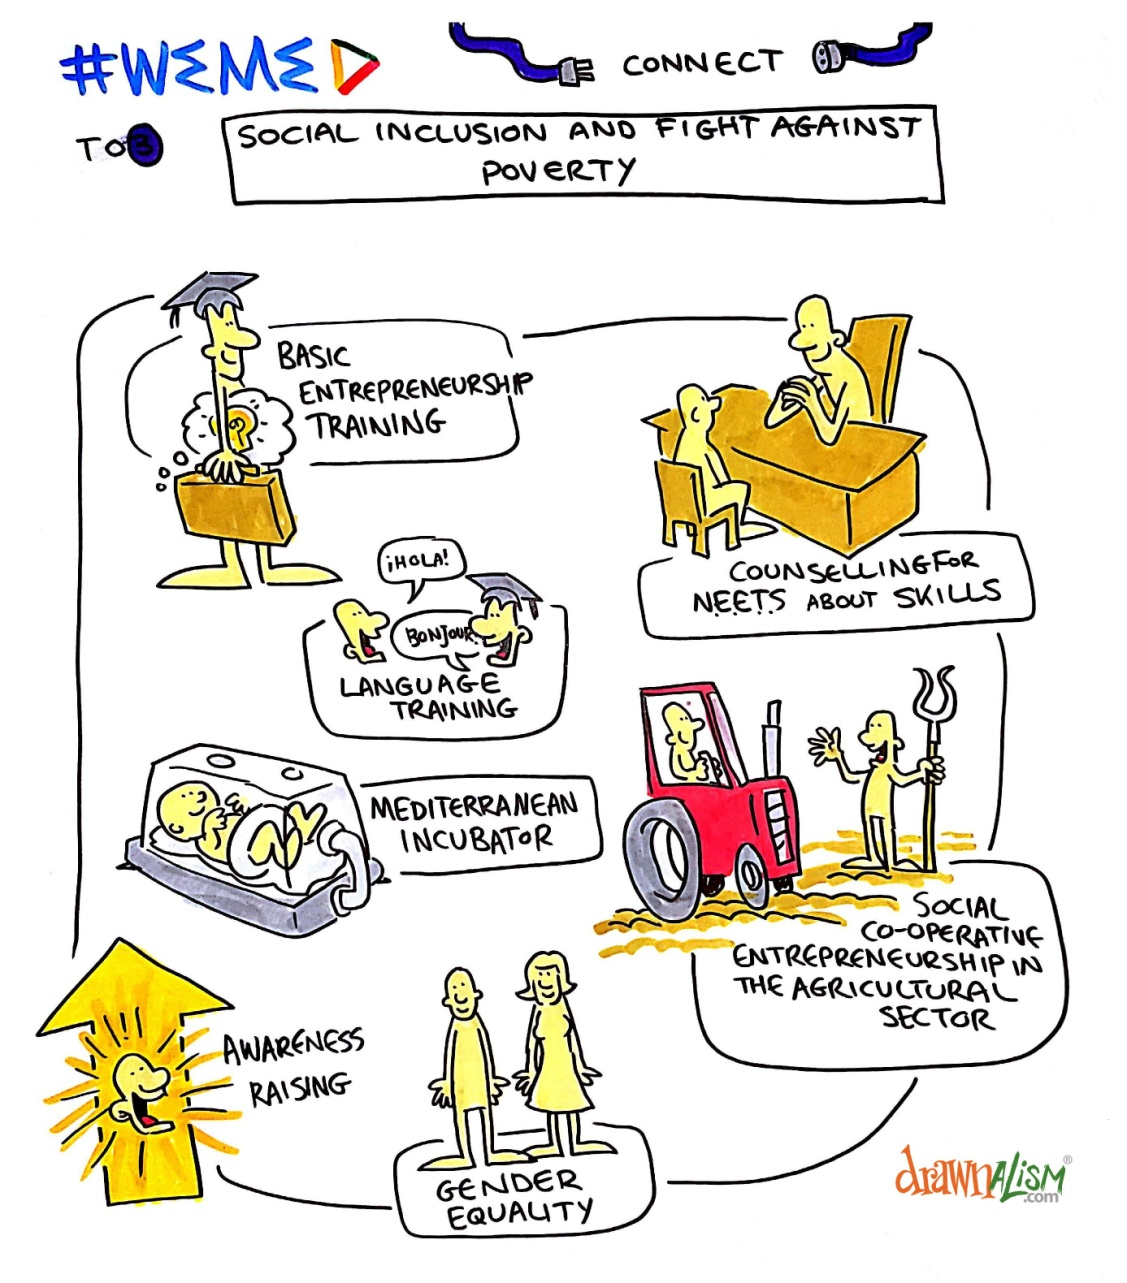 #WEMED
CONNECT
TO3
SOCIAL INCLUSION AND FIGHT AGAINST
POVERTY
BASIC
ENTREPRENEURSHIP
TRAINING
COUNSELLING FOR
N.E.E.T.S ABOUT SKILLS
¡HOLA!
BONJOUR!
LANGUAGE
TRAINING
MEDITERRANEAN
INCUBATOR
SOCIAL
CO-OPERATIVE
ENTREPRENEURSHIP IN
THE AGRICULTURAL
SECTOR
AWARENESS
RAISING
GENDER
EQUALITY
drawnalism®
.com